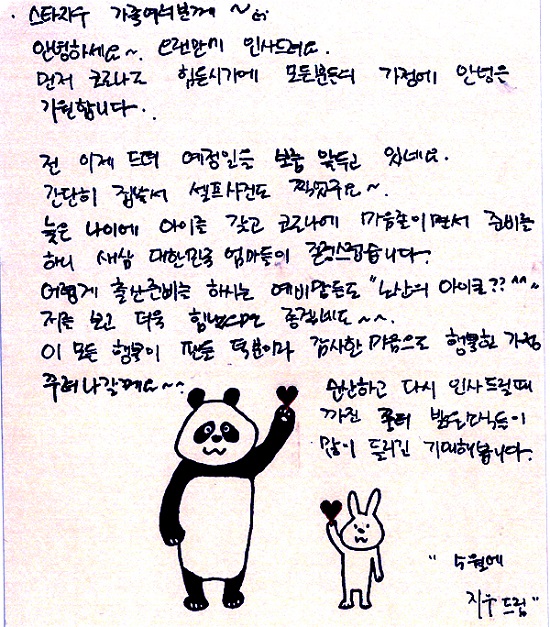 스타지우 가족여러분께 ~
안녕하세요~. 오랜만에 인사드려요.
먼저 코로나로 힘든시기에 모든분들의 가정에 안녕을
기원합니다.
전 이제 드뎌 예정일을 보름 앞두고 있네요.
간단히 집에서 셀프사진도 찍었구요~.
늦은 나이에 아이를 갖고 코로나에 마음졸이면서 준비를
하니 새삼 대한민국 엄마들이 존경스럽습니다.
어렵게 출산준비를 하시는 예비맘들도 "노산의 아이콘?? ^^"
저를 보고 더욱 힘냈으면 좋겠네요~~.
이 모든 행복이 팬들 덕분이라 감사한 마음으로 행복한 가정
꾸려나갈께요~~
순산하고 다시 인사드릴때
까진 꼭 밝은소식들이
많이 들리길 기대해봅니다.
" 5월에
지우드림"